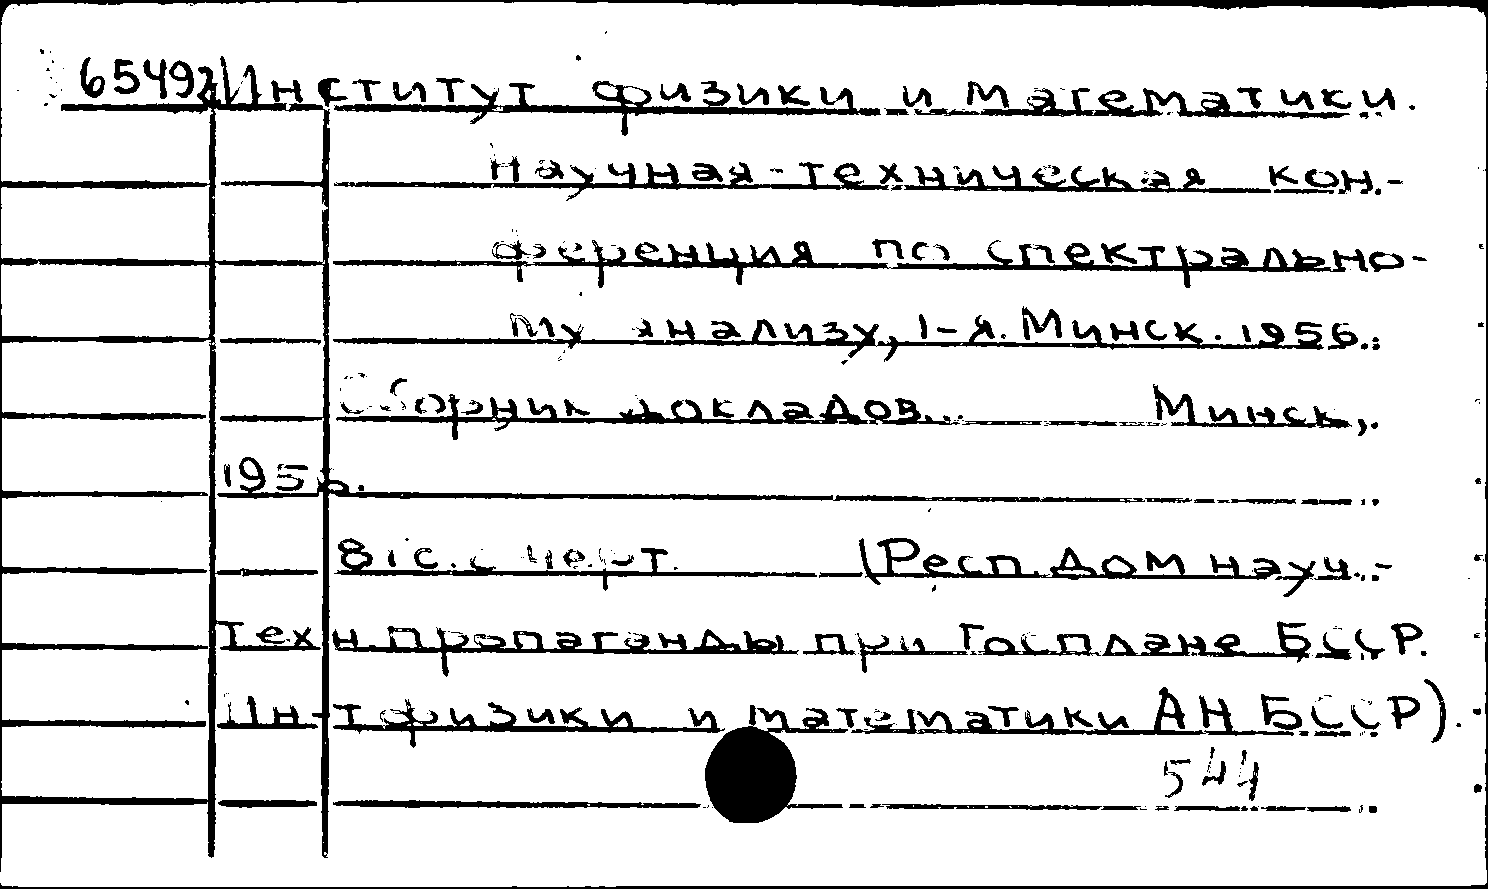 65492 Институт физики и математики.
Научная-техническая кон-
ференция по спектрально-
му анализу, 1-я. Минск. 1956.
Сборник докладов... Минск,
1956.
81 с. с черт. (Респ. дом науч.-
техн. пропаганды при Госплане БССР.
Ин-т физики и математики АН БССР).
544